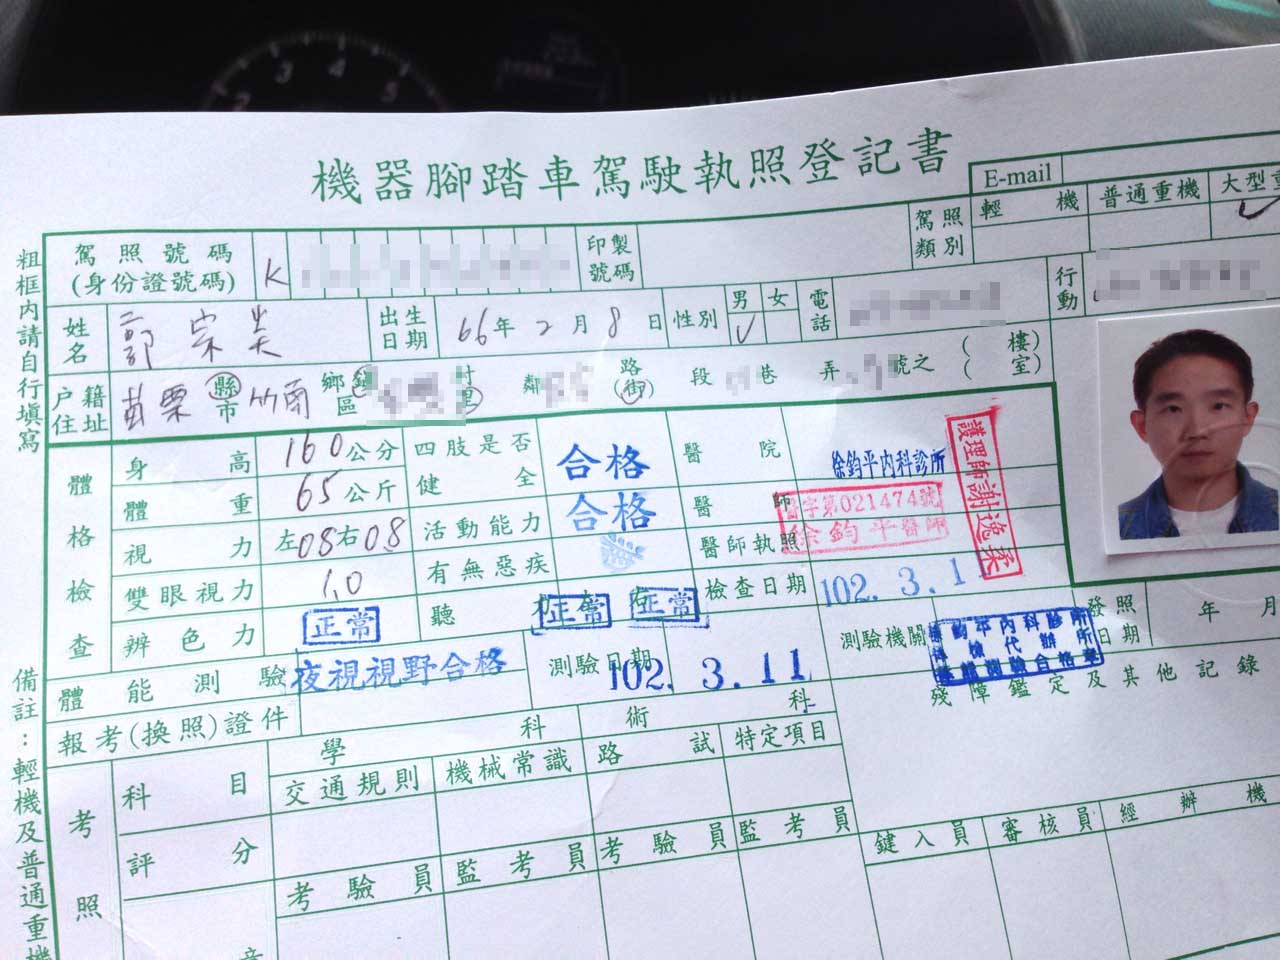 3 4 5
2
機器腳踏車駕駛執照登記書
E-mail
粗框內請自行填寫
駕照號碼
(身份證號碼)
K
印製
號碼
駕照
類別
輕機
普通重機
大型重
姓名
郭宗
出生
日期
66年2月8日
性別
男 女
電話
行動
戶籍
住址
苗栗縣市竹南鄉鎮區村里鄰路(街)段巷弄號之(樓)(室)
體格檢查
身高
160公分
四肢是否
健全
合格
醫院
徐鈞平內科診所
護理師謝逸柔
體重
65公斤
活動能力
合格
醫師
醫字第021474號
徐鈞平醫師
視力
左08右08
有無惡疾
醫師執照
雙眼視力
1.0
聽
正常
正常
檢查日期
102.3.11
辨色力
正常
體能測驗
夜視視野合格
測驗日期
102.3.11
測驗機關
發照
日期
年 月
殘障鑑定及其他記錄
報考(換照)證件
備註:輕機及普通重機
考照
科目
學科
術科
交通規則
機械常識
路試
特定項目
評分
考驗員
監考員
考驗員
監考員
鍵入員
審核員
經辦機